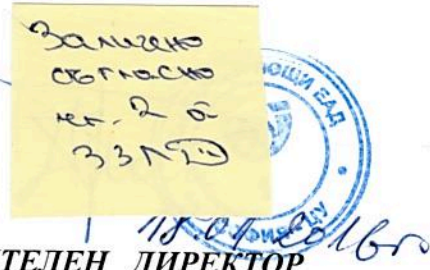 Заличено
съгласно
чл. 2 от
ЗЗЛД
ОЩИ ЕАД
СОФИЯ
18.01.2016г.
ИТЕЛЕН ДИРЕКТОР